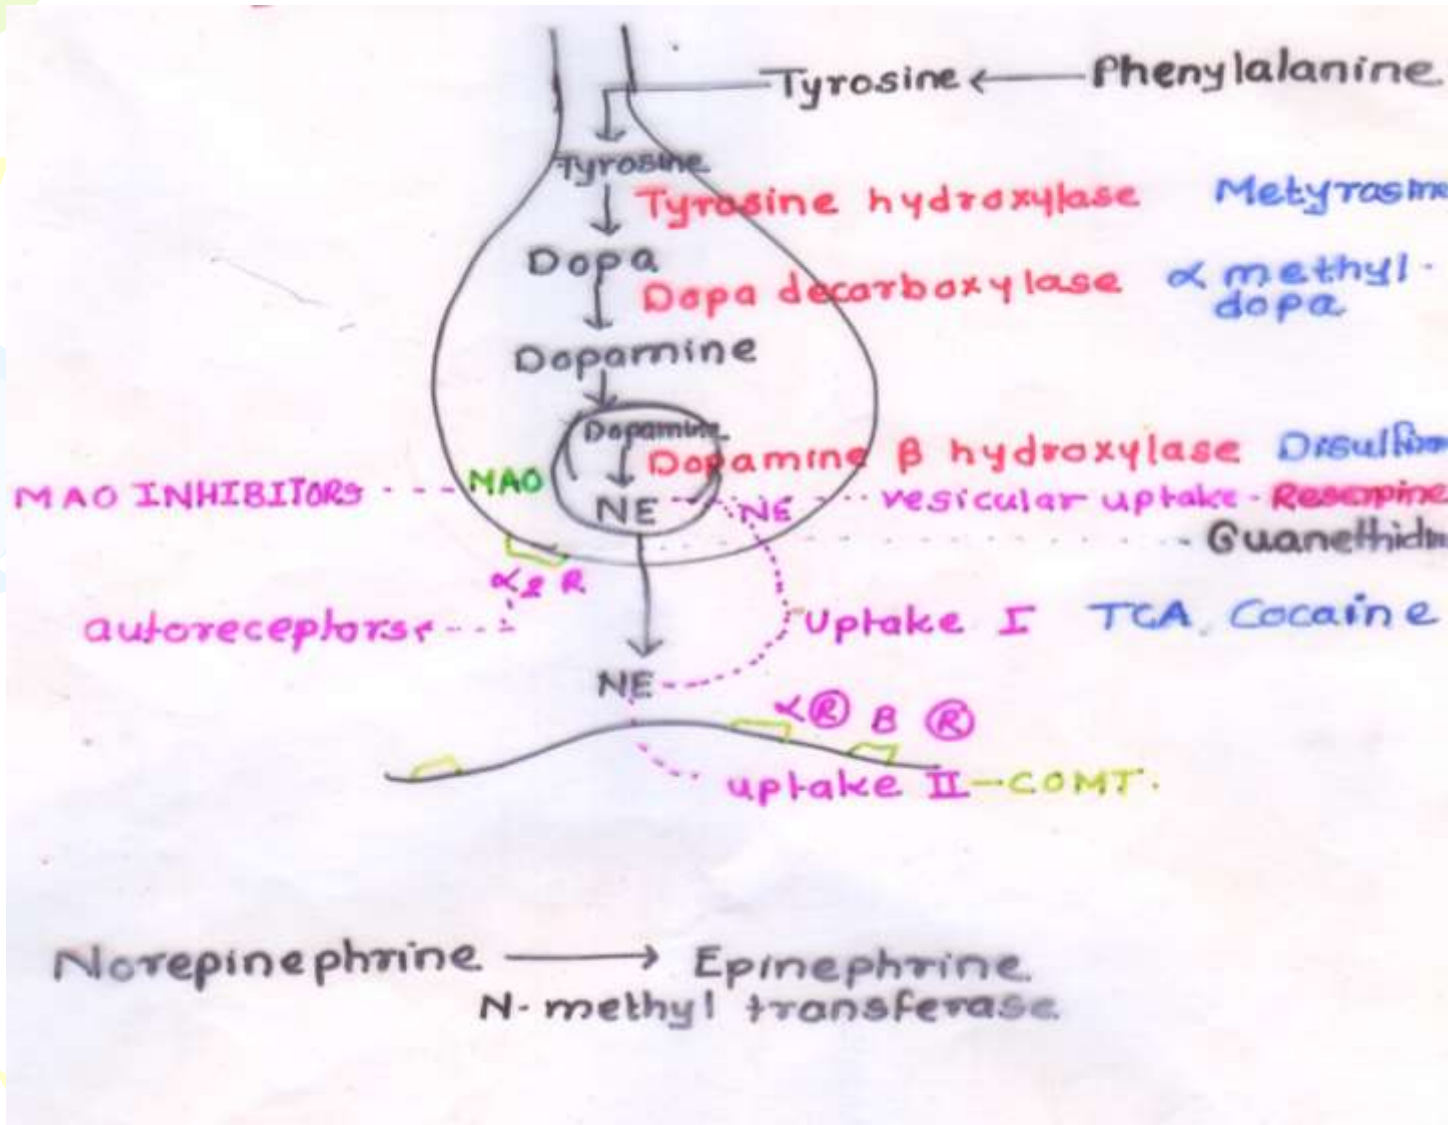 Tyrosine ← Phenylalanine
Tyrosine
Tyrosine hydroxylase Metyrosine
Dopa
Dopa decarboxylase α methyl
dopa
Dopamine
Dopamine
Dopamine β hydroxylase
MAO INHIBITORS MAO
NE NE vesicular uptake - Reserpine
Guanethidin
α2 R
autoreceptors
Uptake I TCA, Cocaine
NE
α R B R
uptake II - COMT.
Norepinephrine → Epinephrine
N-methyl transferase